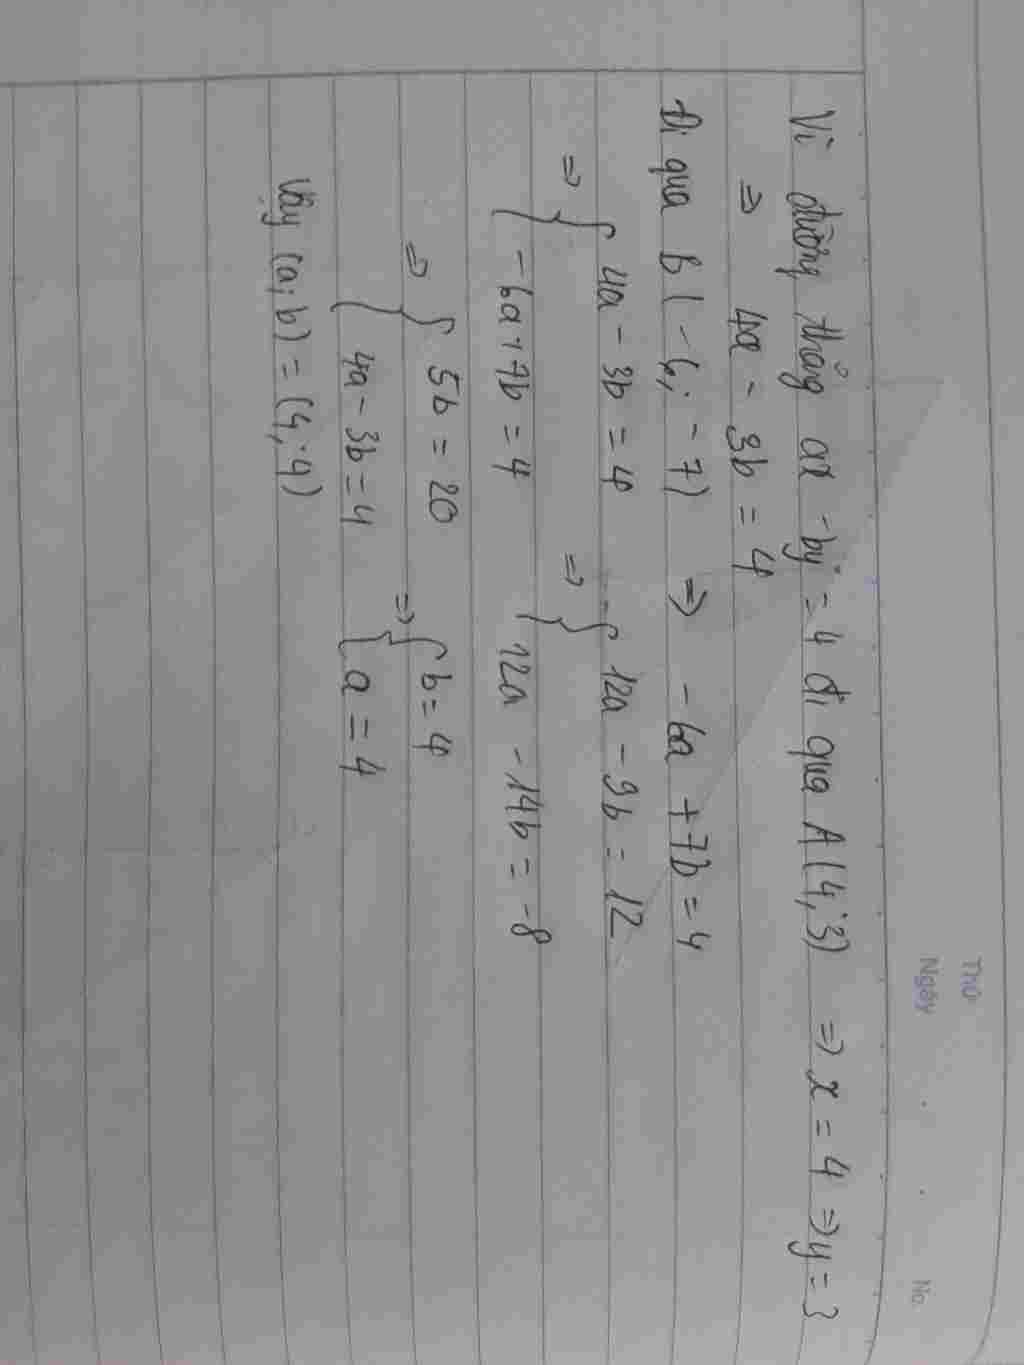 Thứ
Ngày No.
Vì đường thẳng ax - by = 4 đi qua A(4;3) => x = 4 => y = 3
=> 4a - 3b = 4
Đi qua B(-6; -7) => -6a + 7b = 4
=> { 4a - 3b = 4 => { 12a - 9b = 12
-6a + 7b = 4 12a - 14b = -8
=> { 5b = 20 => { b = 4
4a - 3b = 4 a = 4
Vậy (a; b) = (4; 4)